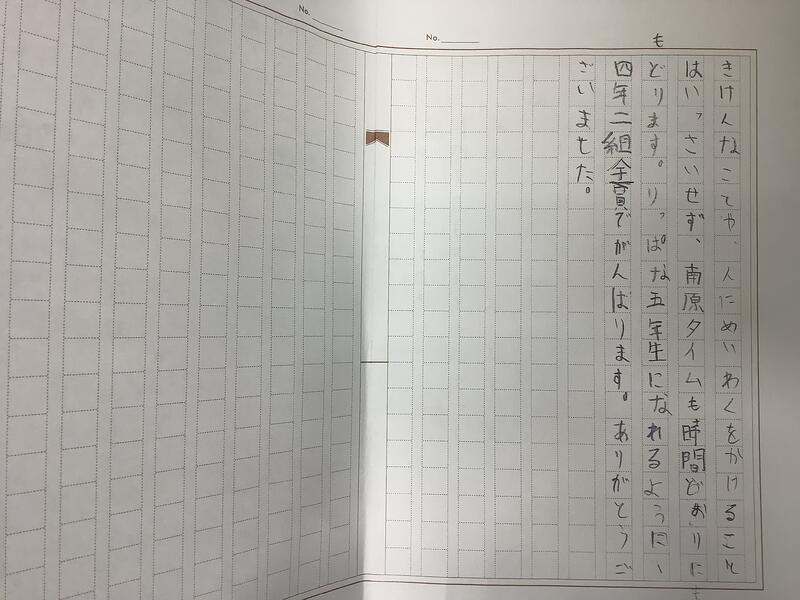 No.
No.
きけんなことや、人にめいわくをかけること
はいっさいせず、南原タイムも時間どおりに
もどります。りっぱな五年生になれるように、
四年二組全員でがんばります。ありがとうご
ざいました。